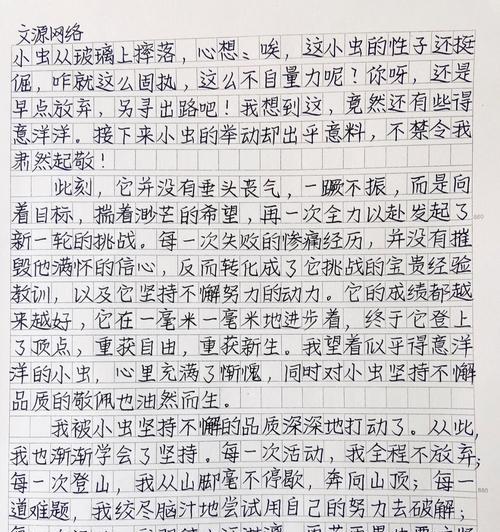 文源网络
小虫从玻璃上摔落，心想：唉，这小虫的性子还挺
倔，咋就这么固执，这么不自量力呢？你呀，还是
早点放弃，另寻出路吧！我想到这，竟然还有些得
意洋洋。接下来小虫的举动却出乎意料，不禁令我
肃然起敬！
此刻，它并没有垂头丧气，一蹶不振，而是向
着目标，揣着渺茫的希望，再一次全力以赴发起了
新一轮的挑战。每一次失败的惨痛经历，并没有摧
毁他满怀的信心，反而转化成了它挑战的宝贵经验
教训，以及它坚持不懈努力的动力。它的成绩都越
来越好，它在一毫米一毫米地进步着，终于它登上
了顶点，重获自由，重获新生。我望着似乎得意洋
洋的小虫，心里充满了惭愧，同时对小虫坚持不懈
品质的敬佩也油然而生。
我被小虫坚持不懈的品质深深地打动了。从此，
我也渐渐学会了坚持。每一次活动，我全程不放弃；
每一次登山，我从山脚毫不停歇，奔向山顶；每一
道难题，我绞尽脑汁地尝试用自己的努力去破解；
660
880